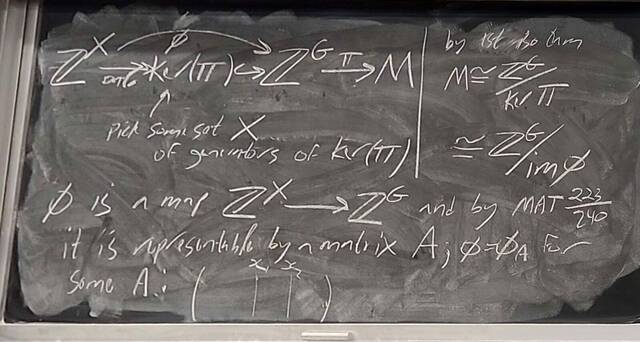 ϕ
ℤ^X ⟶ onto ker(π) ↪ ℤ^G —π→ M
pick some set X
of generators of ker(π)
by 1st iso thm
M ≅ ℤ^G / ker π
≅ ℤ^G / im ϕ
ϕ is a map ℤ^X ⟶ ℤ^G and by MAT 223/240
it is representable by a matrix A; ϕ=ϕ_A for
some A: ( x₁ | x₂ | )